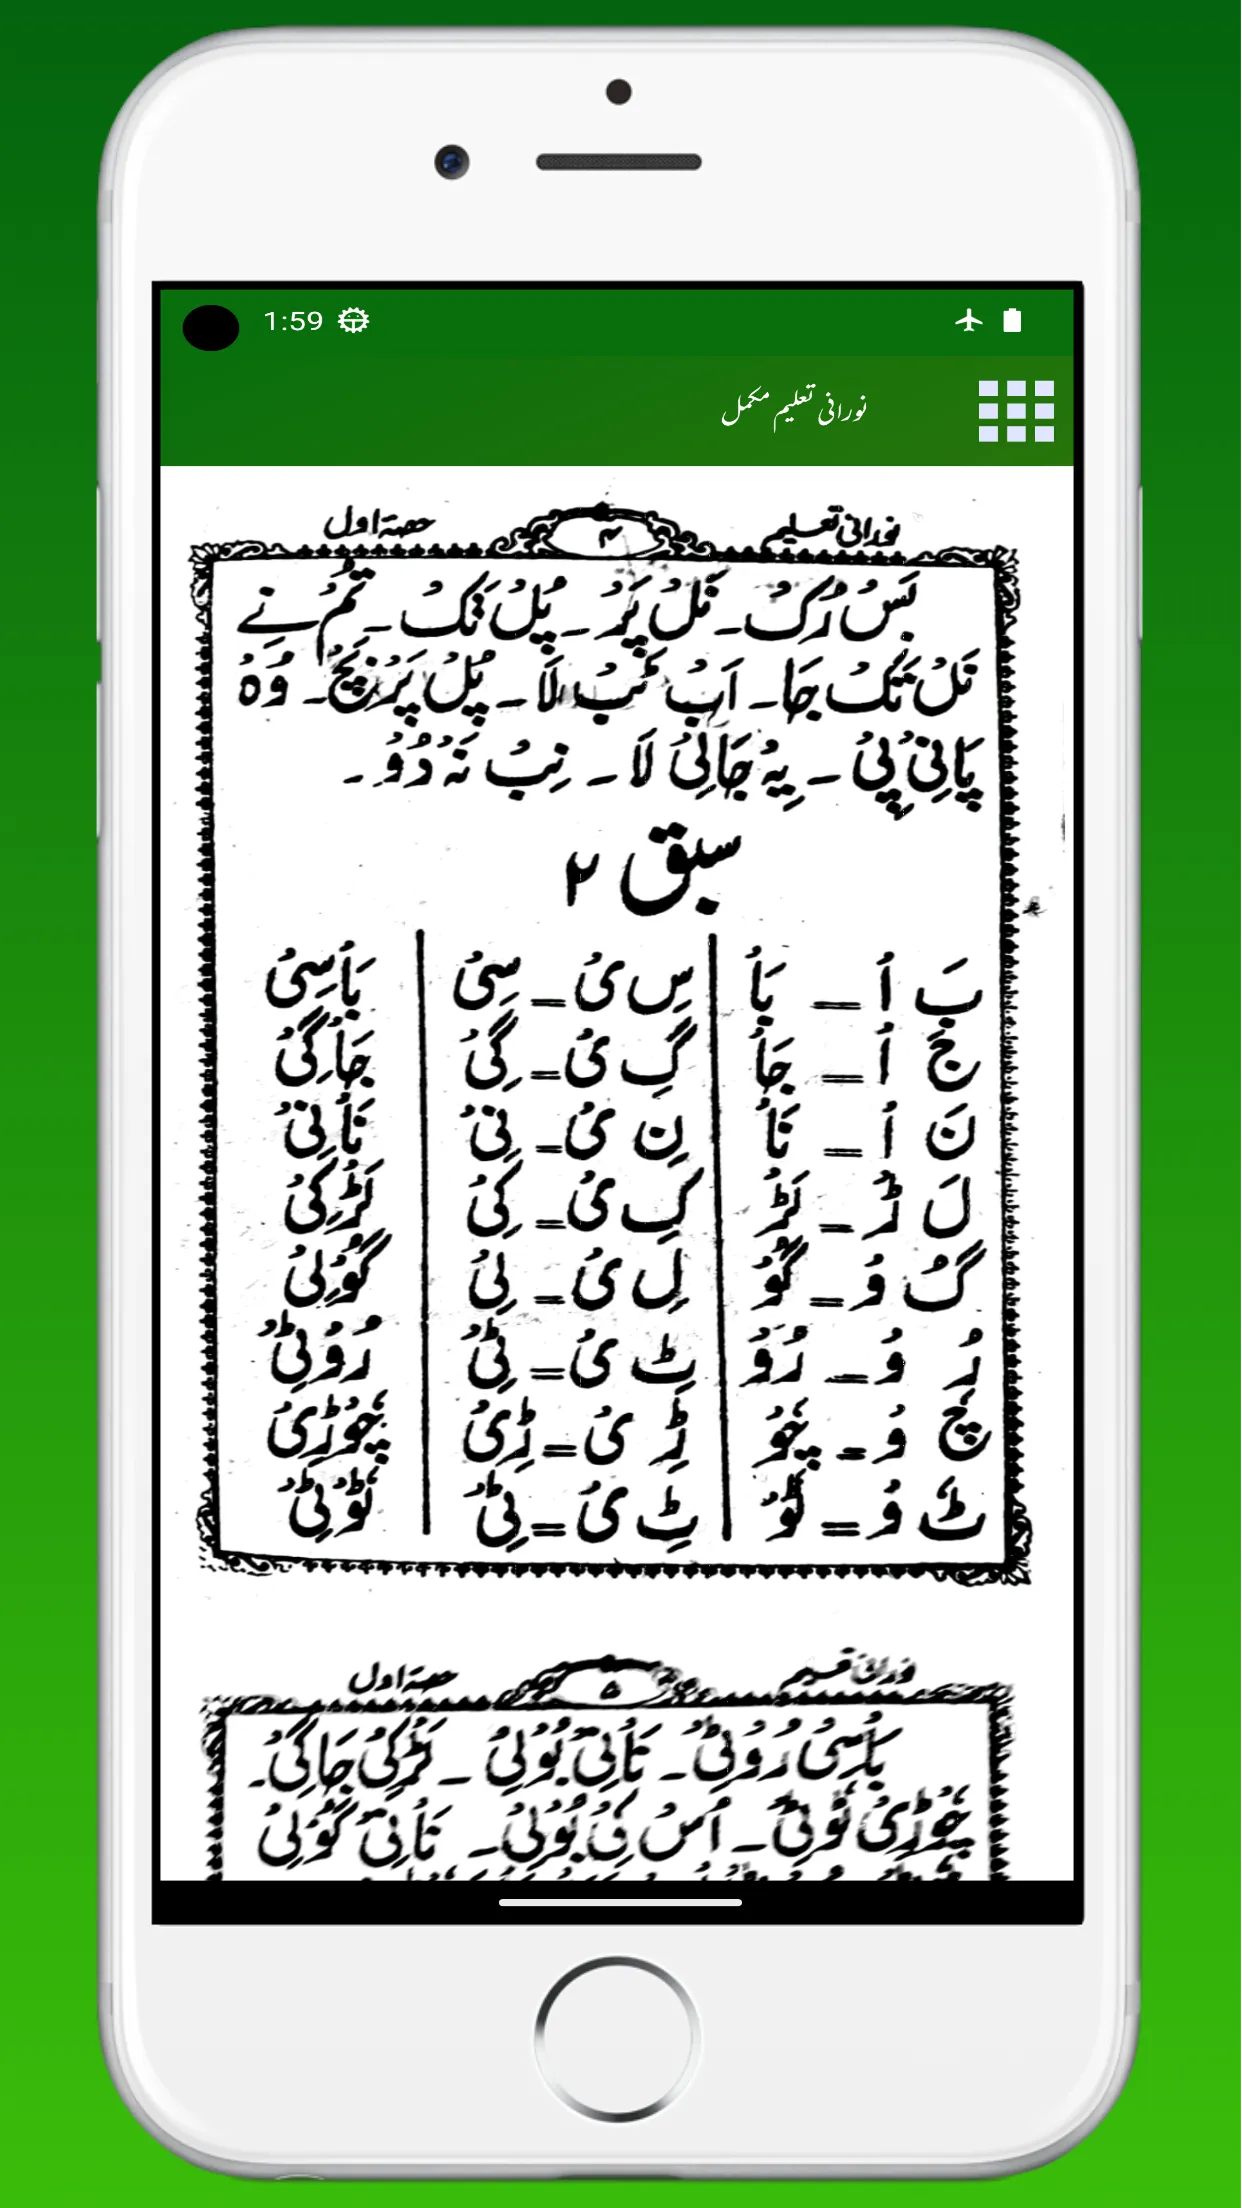 1:59
نورانی تعلیم مکمل
نورانی تعلیم ۴ حصہ اول
بَسْ رُکْ۔ نَلْ پَرْ۔ پُلْ تَکْ۔ تُمْ نے
نَلْ تَکْ جَا۔ اَبْ نَبْ لَا۔ پُلْ پَرْ نَچْ۔ وُہْ
پَانِیْ پِیْ۔ یِہْ جَالِیْ لَا۔ نِبْ نَہْ دُوْ۔
سبق ۲
بَ اْ = بَاْ سِ یْ = سِیْ بَاْسِیْ
جَ اْ = جَاْ گِ یْ = گِیْ جَاْگِیْ
نَ اْ = نَاْ نِ یْ = نِیْ نَاْنِیْ
لَ ڑْ = لَڑْ کِ یْ = کِیْ لَڑْکِیْ
گُ وْ = گُوْ لِ یْ = لِیْ گُوْلِیْ
رُ وْ = رُوْ ٹِ یْ = ٹِیْ رُوْٹِیْ
چٗ وْ = چٗوْ ڑِ یْ = ڑِیْ چٗوْڑِیْ
ٹٗ وْ = ٹٗوْ ٹِ یْ = ٹِیْ ٹٗوْٹِیْ
حصہ اول ۵
بَاْسِیْ رُوْٹِیْ۔ نَاْنِیْ بُوْلِیْ۔ لَڑْکِیْ جَاگِیْ۔
چٗوْڑِیْ ٹٗوْٹِیْ۔ اُسْ کِیْ بُوْلِیْ۔ نَاْنِیْ گُوْلِیْ